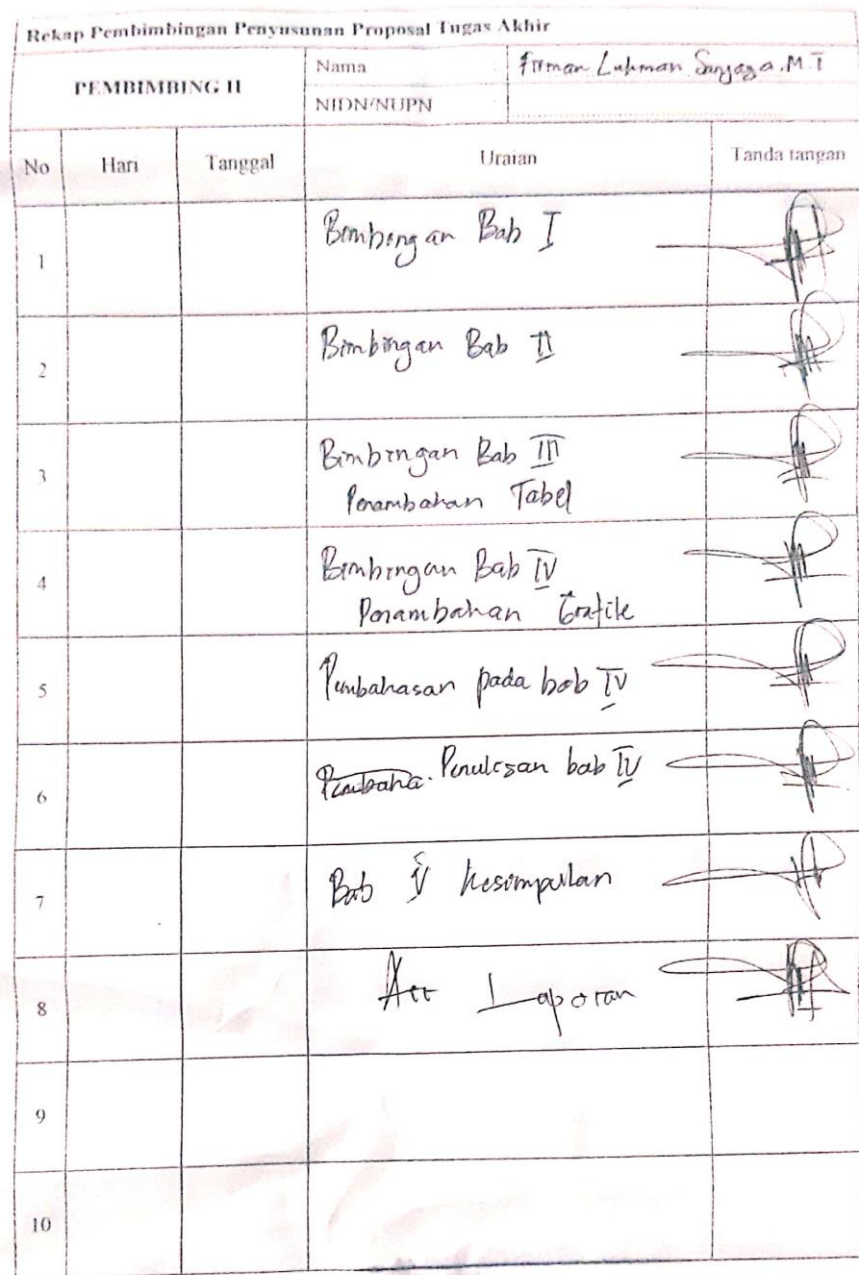 Rekap Pembimbingan Penyusunan Proposal Tugas Akhir
PEMBIMBING II
Nama
Firman Lukman Sanjaya. M.T
NIDN/NUPN
No Hari Tanggal Uraian Tanda tangan
1 Bimbingan Bab I
2 Bimbingan Bab II
3 Bimbingan Bab III
Penambahan Tabel
4 Bimbingan Bab IV
Penambahan Grafik
5 Pembahasan pada bab IV
6 Pembaha. Penulisan bab IV
7 Bab V Kesimpulan
8 Acc Laporan
9
10